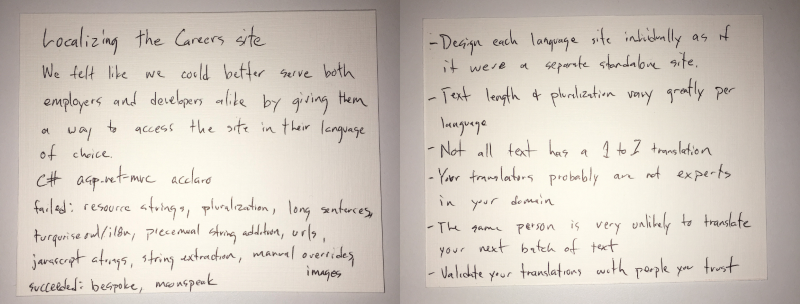 Localizing the Careers site
We felt like we could better serve both
employers and developers alike by giving them
a way to access the site in their language
of choice.
C# asp.net-mvc acclaro
failed: resource strings, pluralization, long sentences,
turquoise owl/i18n, piecemeal string addition, urls,
javascript strings, string extraction, manual overrides,
images
succeeded: bespoke, moonspeak
- Design each language site individually as if
it were a separate standalone site.
- Text length & pluralization vary greatly per
language
- Not all text has a 1 to 1 translation
- Your translators probably are not experts
in your domain
- The same person is very unlikely to translate
your next batch of text
- Validate your translations with people you trust